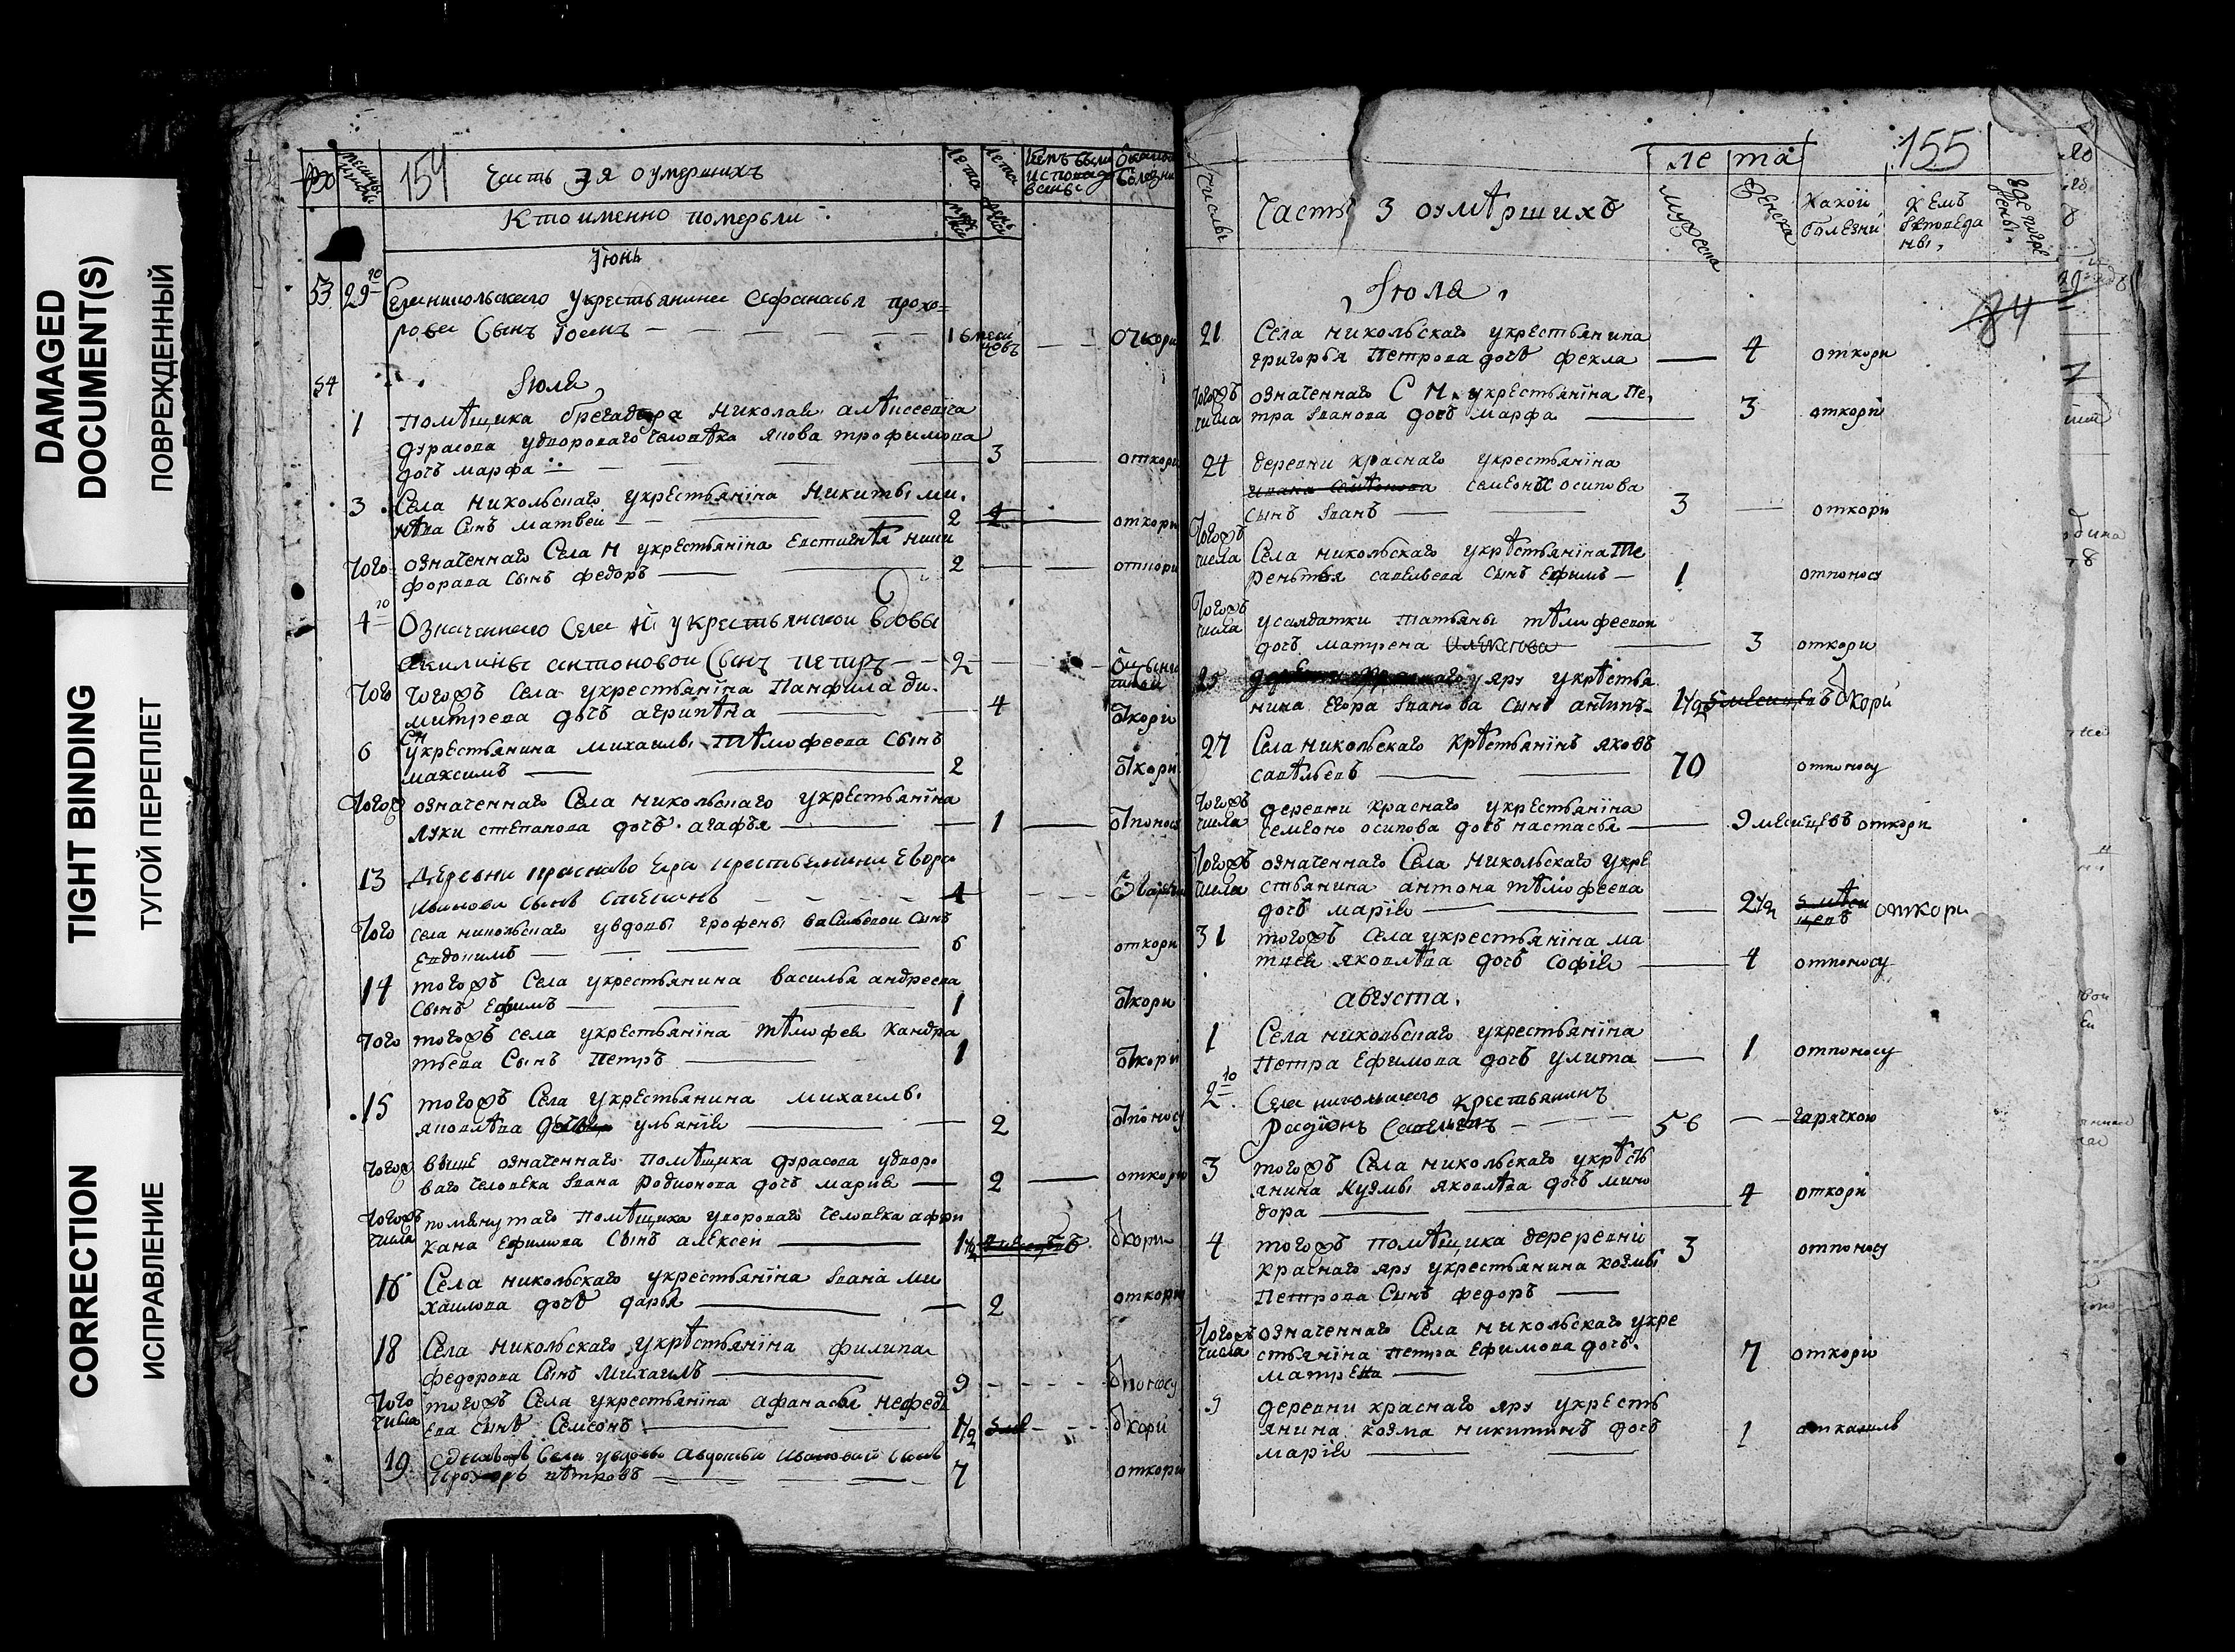 DAMAGED
DOCUMENT(S)
ПОВРЕЖДЕННЫЙ
TIGHT BINDING
ТУГОЙ ПЕРЕПЛЕТ
CORRECTION
ИСПРАВЛЕНИЕ
154 Часть 3я о умершихъ
Кто именно померьли
Лета Лета
Июнь
53 29 го Села никольскаго у крестьянина Афанасья прохо=
рова Сынъ 1 6 меся цовъ
54 Июля
1 Помѣщика брегадира николая алѣксеевича
дурасова удвороваго человѣка якова трофимова
дочь марфа 3 откори
3 Села никольскаго укрестьяніна никиты ми
сынъ матвеи 2 откори
того означеннаго Села Н укрестьяніна Евстигнѣя ники
форава сынъ федоръ 2 откори
4 го Означеннаго Села Н: у крестьянскои вдовы
акилины антоновои Сынъ петръ 2
того тогожъ Села укрестьяніна Панфила ди
митрева дочь агрипѣна 4 откори
6 С Н укрестьянина михаилы тѣмофеева сынъ
максимъ 2 откори
тогож означеннаго Села никольскаго укрестьяніна
луки степанова дочь агафья 1 отпоносу
13 Деревни краснаго яра крестьянина Егора
Иванова сынъ 4
того села никольскаго увдовы Графены васильевои сынъ
Евдокимъ 6 откори
14 тогожъ Села укрестьянина василья андреева
Сынъ Ефимъ 1 откори
того тогожъ села укрестьяніна тѣмофея кандра
тьева Сынъ Петръ 1 откори
15 тогожъ Села укрестьянина михаилы
яковлѣва ульянія 2 отпоносу
тогож выше означеннаго помѣщика дурасова удворо
ваго человека Ивана Родионова дочь мария 2 откори
тогожъ числа помянутаго помѣщика удвороваго человека афри
кана Ефимова сынъ алексеи 1 1/2 откори
16 Села никольскаго укрестьяніна Ивана ми
хаилова дочь дарья 2 откори
18 Села никольскаго укрѣстьяніна филипа
федорова сынъ михаилъ 9 отпоносу
того числа тогожъ Села укрестьяніна афанасья нефедь
ева сынъ Семенъ 1 1/2 откори
19 Села увдовы Авдотьи Ивановои сынъ
прохоръ пѣтровъ 7 откори
155
Числы Часть 3 оумѣршихъ ле та
мужеска женска какои болезни кемъ исповеданы, где погребены
84
Июля
21 Села никольскаго укрестьянина
григорья петрова дочь фекла 4 откори
тогожъ числа означеннаго С Н. укрестьяніна Пе,
тра Иванова дочь марфа 3 откори
24 деревни краснаго укрестьяніна
ивана семенова семеона осипова
сынъ Иванъ 3 откори
тогожъ числа Села никольскаго укрѣстьянина Те
рентья савельева сынъ Ефимъ 1 отпоносу
тогожъ числа усалдатки татьяны тѣмофеевои
дочь матрена 3 откори
25 яру укрѣстья
нина Егора Иванова сынъ антипъ 1 1/2 откори
27 Села никольскаго крѣстьянінъ яковъ
савѣльевъ 70 отпоносу
тогожъ числа деревни краснаго укрестьяніна
семеоно осипова дочь настасья 9 месяцевъ откори
тогожъ числа означеннаго Села никольскаго укре
стьянина антона тѣмофеева
дочь мария 2 1/2 откори
31 тогожъ Села укрестьяніна ма
твея яковлѣва дочь софия 4 отпоносу
августа.
1 Села никольскаго укрестьяніна
Петра Ефимова дочь улита 1 отпоносу
2 го Села никольскаго крестьянинъ
Радіонъ Савельевъ 56 гарячкою
3 тогожъ Села никольскаго укрѣсть
янина кузмы яковлѣва дочь мино
дора 4 откори
4 тогожъ помѣщика дереревни
краснаго яру укрестьянина козмы 3 отпоносу
Петрова Сынъ федоръ
тогожъ числа означеннаго Села никольскаго укре
стьяніна петра Ефимова дочь.
матрена 7 откори
5 деревни краснаго яру укресть
янина козма никитинъ дочь
мария 1